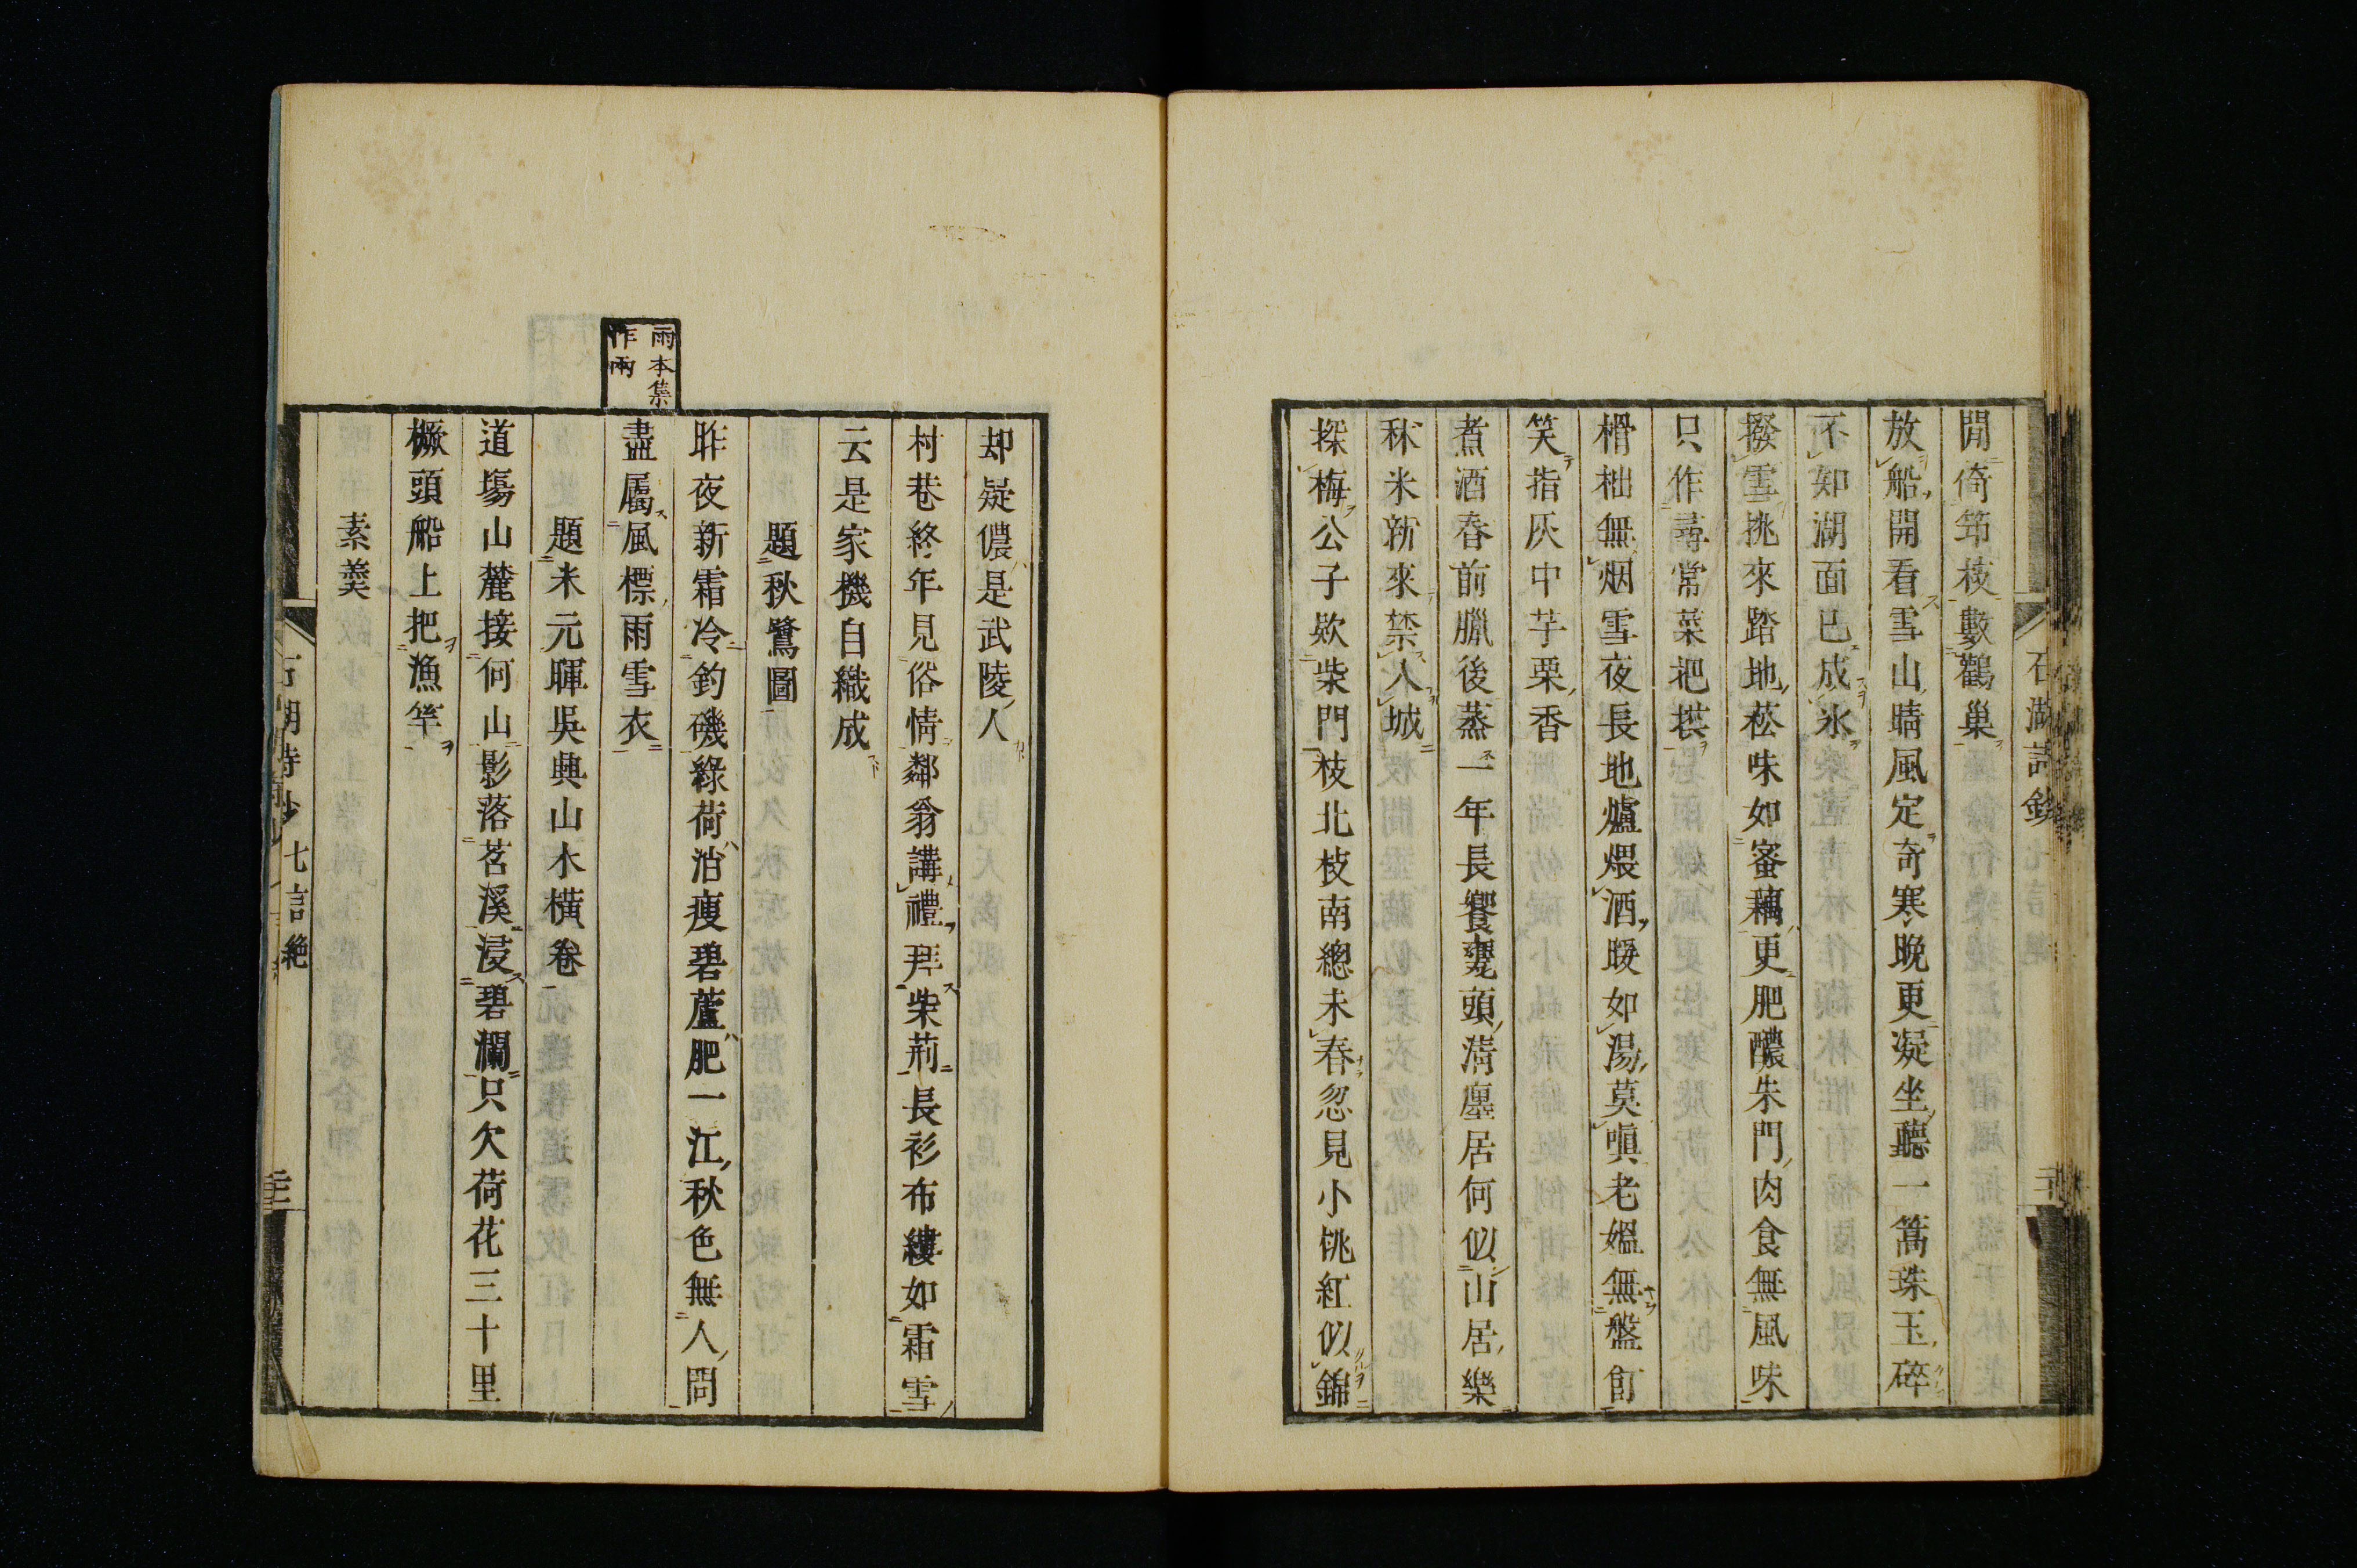 閒倚筇枝數鸛巢
放船開看雪山晴風定奇寒晚更凝坐聽一篙珠玉碎
不知湖面已成氷
撥雪挑來踏地菘味如蜜藕更肥醲朱門肉食無風味
只作尋常菜把供
榾柮無烟雪夜長地爐煨酒暖如湯莫嗔老媼無盤飣
笑指灰中芋栗香
煮酒春前臘後蒸一年長饗甕頭清廛居何似山居樂
秫米新來禁入城
探梅公子欵柴門枝北枝南總未春忽見小桃紅似錦
石湖詩鈔
却疑儂是武陵人
村巷終年見俗情鄰翁講禮拜柴荊長衫布縷如霜雪
云是家機自織成
題秋鷺圖
昨夜新霜冷釣磯綠荷消瘦碧蘆肥一江秋色無人問
盡屬風標雨雪衣
雨本集
作兩
題米元暉吳興山水橫卷
道塲山麓接何山影落苕溪浸碧瀾只欠荷花三十里
橛頭船上把漁竿
素羹
石湖詩鈔 七言絶